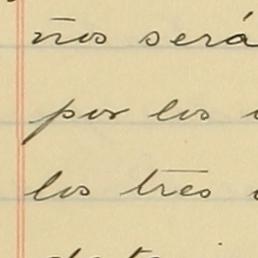 ños será
por los
los tres